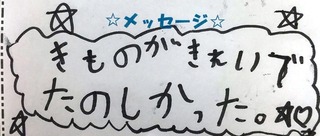 ☆メッセージ☆
きものがきれいで
たのしかった。